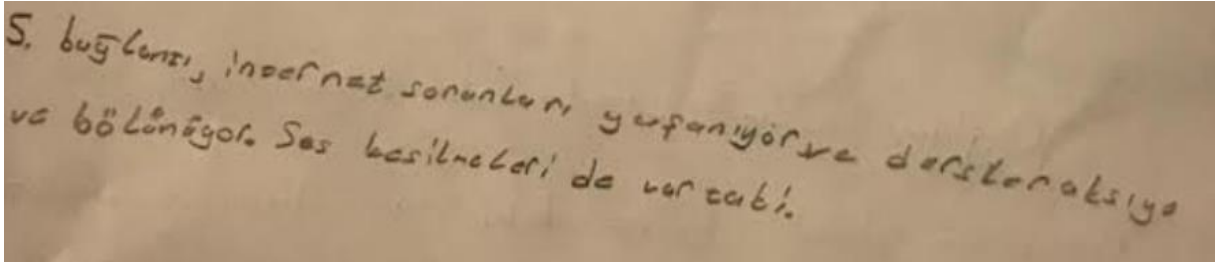 5. bağlantı, internet sorunları yaşanıyor ve dersler aksıyo
ve bölünüyor. Ses kesilmeleri de var tabi.